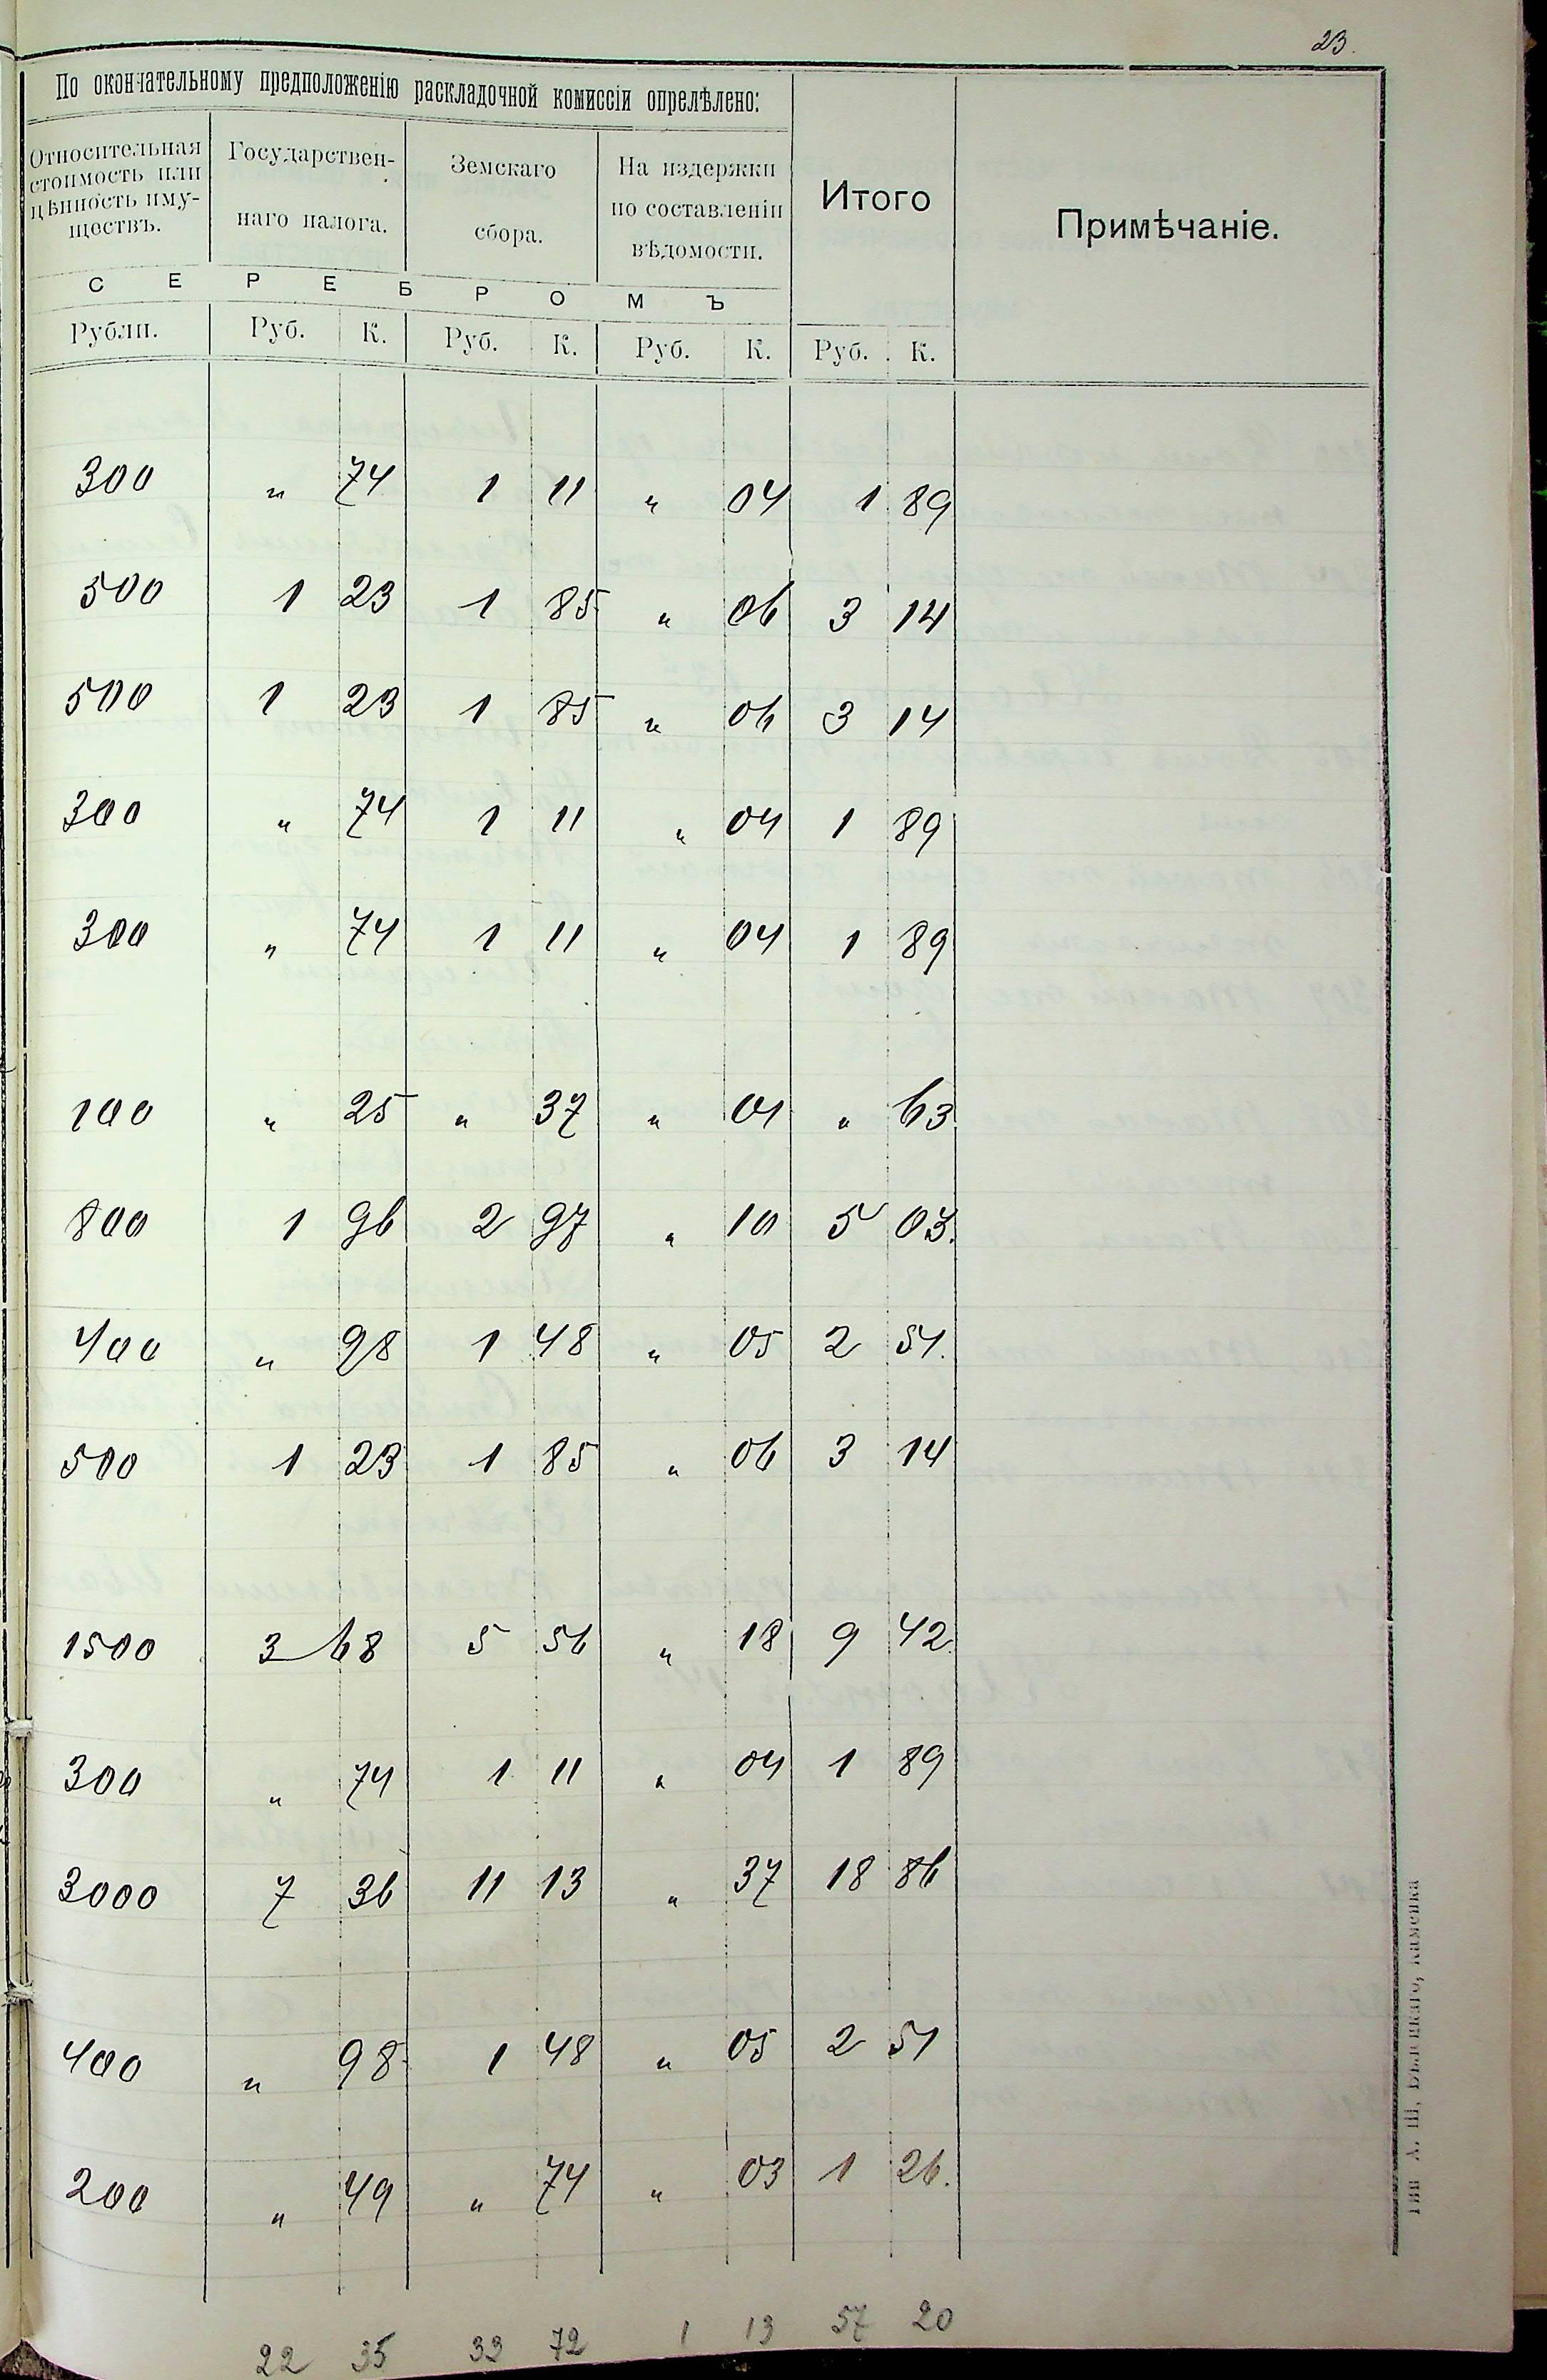 23.
По окончательному предположенію раскладочной комиссіи опрелѣлено:
Относительная стоимость или цѣнность иму-ществъ.
Государствен-наго налога.
Земскаго сбора.
На издержки по составленіи вѣдомости.
Итого
Примѣчаніе.
С Е Р Е Б Р О М Ъ
Рубли. Руб. К. Руб. К. Руб. К. Руб. К.
300 " 74 1 11 " 04 1 89
500 1 23 1 85 " 06 3 14
500 1 23 1 85 " 06 3 14
300 " 74 1 11 " 04 1 89
300 " 74 1 11 " 04 1 89
100 " 25 " 37 " 01 " 63
800 1 96 2 97 " 10 5 03.
400 " 98 1 48 " 05 2 51.
500 1 23 1 85 " 06 3 14
1500 3 68 5 56 " 18 9 42.
300 " 74 1 11 " 04 1 89
3000 7 36 11 13 " 37 18 86
400 " 98 1 48 " 05 2 51
200 " 49 " 74 " 03 1 26.
22 35 33 72 1 13 57 20
Тип А. Ш. Бѣлецкаго, Каменка